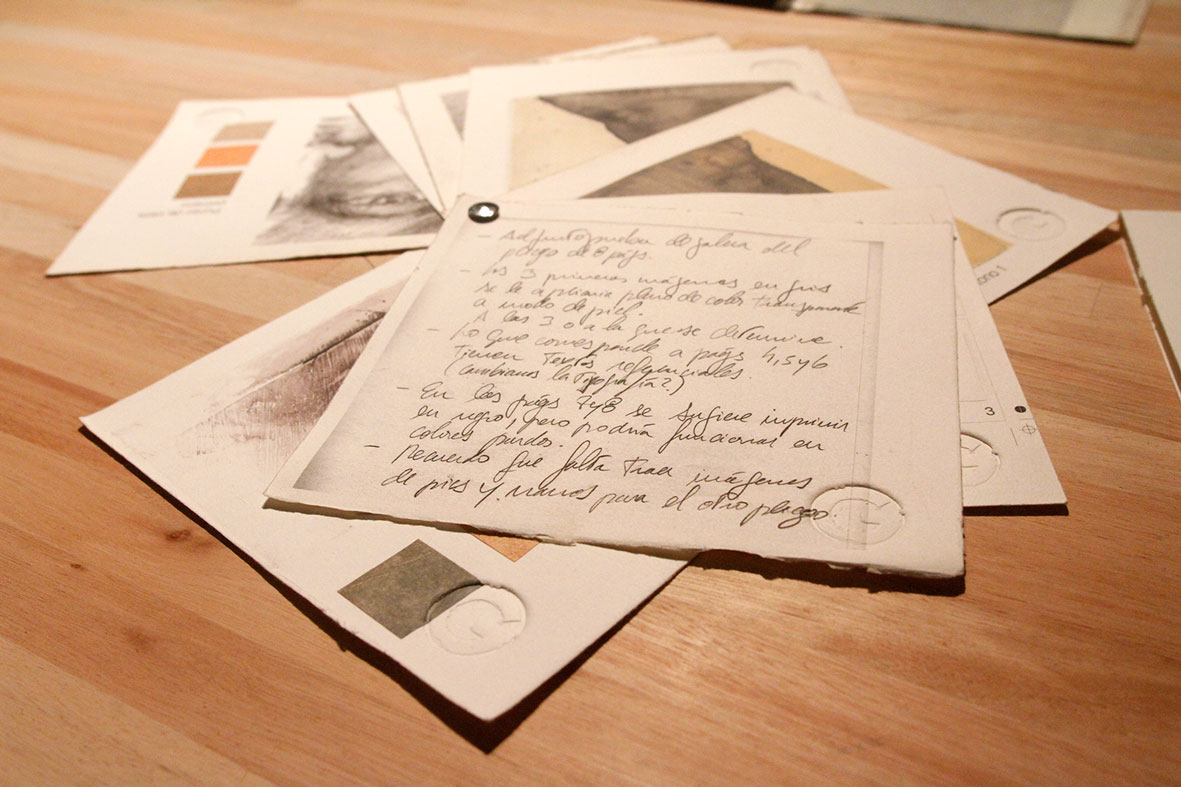 - Adjunto prueba de galera del
pliego de 8 págs.
- Las 3 primeras imágenes en gris
se le aplicaria plano de color transparente
a modo de piel.
A las 3 o a la que se determine.
- Lo que corresponde a págs 4, 5 y 6
Tienen Textos referenciales.
(Cambiamos la Tipografía?)
- En las págs 7 y 8 se sugiere imprimir
en negro, pero podría funcionar en
colores pardos.
- Recuerdo que falta Traer imágenes
de pies y manos para el otro pliego.
3